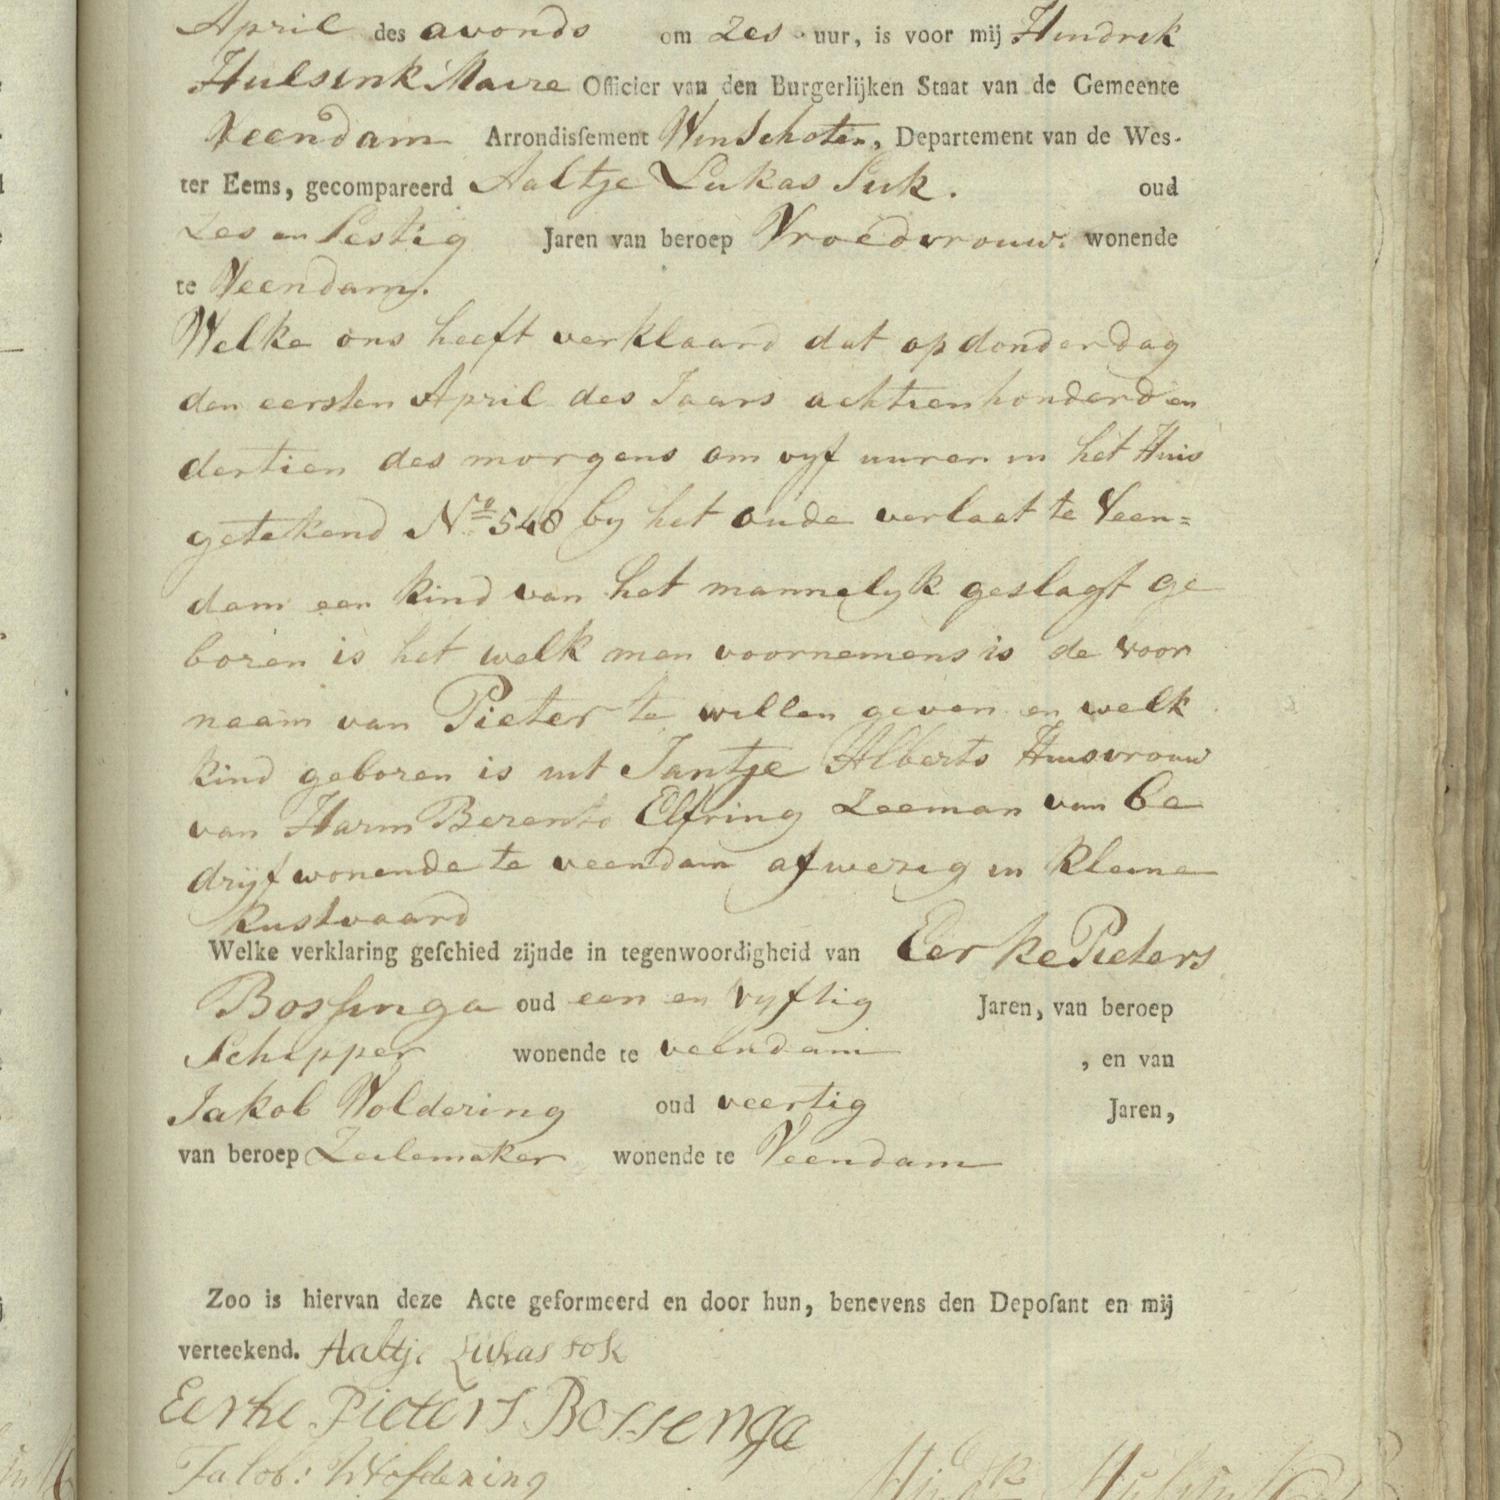 April des avonds om Zes uur, is voor mij Hindrik
Hulsink Maire Officier van den Burgerlijken Staat van de Gemeente
Veendam Arrondisſement Winschoten, Departement van de Wes-
ter Eems, gecompareerd Aaltje Lukas Suk. oud
Zes en Sestig Jaren van beroep Vroedvrouw. wonende
te Veendam.
Welke ons heeft verklaard dat op donderdag
den eersten April des Jaars achtien honderd en
dertien des morgens om vyf uuren in het Huis
getekend No 548 by het oude verlaat te Veen=
dam een kind van het mannelyk geslagt ge
boren is het welk men voornemens is de voor
naam van Pieter te willen geven en welk
kind geboren is uit Jantje Alberts Huisvrouw
van Harm Berents Elfring Zeeman van be
drijf wonende te veendam afwezig in kleine
kustvaard
Welke verklaring geſchied zijnde in tegenwoordigheid van Eerke Pieters
Bosſinga oud een en vyftig Jaren, van beroep
Schipper wonende te veendam , en van
Jakob Woldering oud veertig Jaren,
van beroep Zeilemaker wonende te Veendam
Zoo is hiervan deze Acte geformeerd en door hun, benevens den Depoſant en mij
verteekend. Aaltje Lukas sok
Eerke Pieters Bossenga
Jakob: Woldering